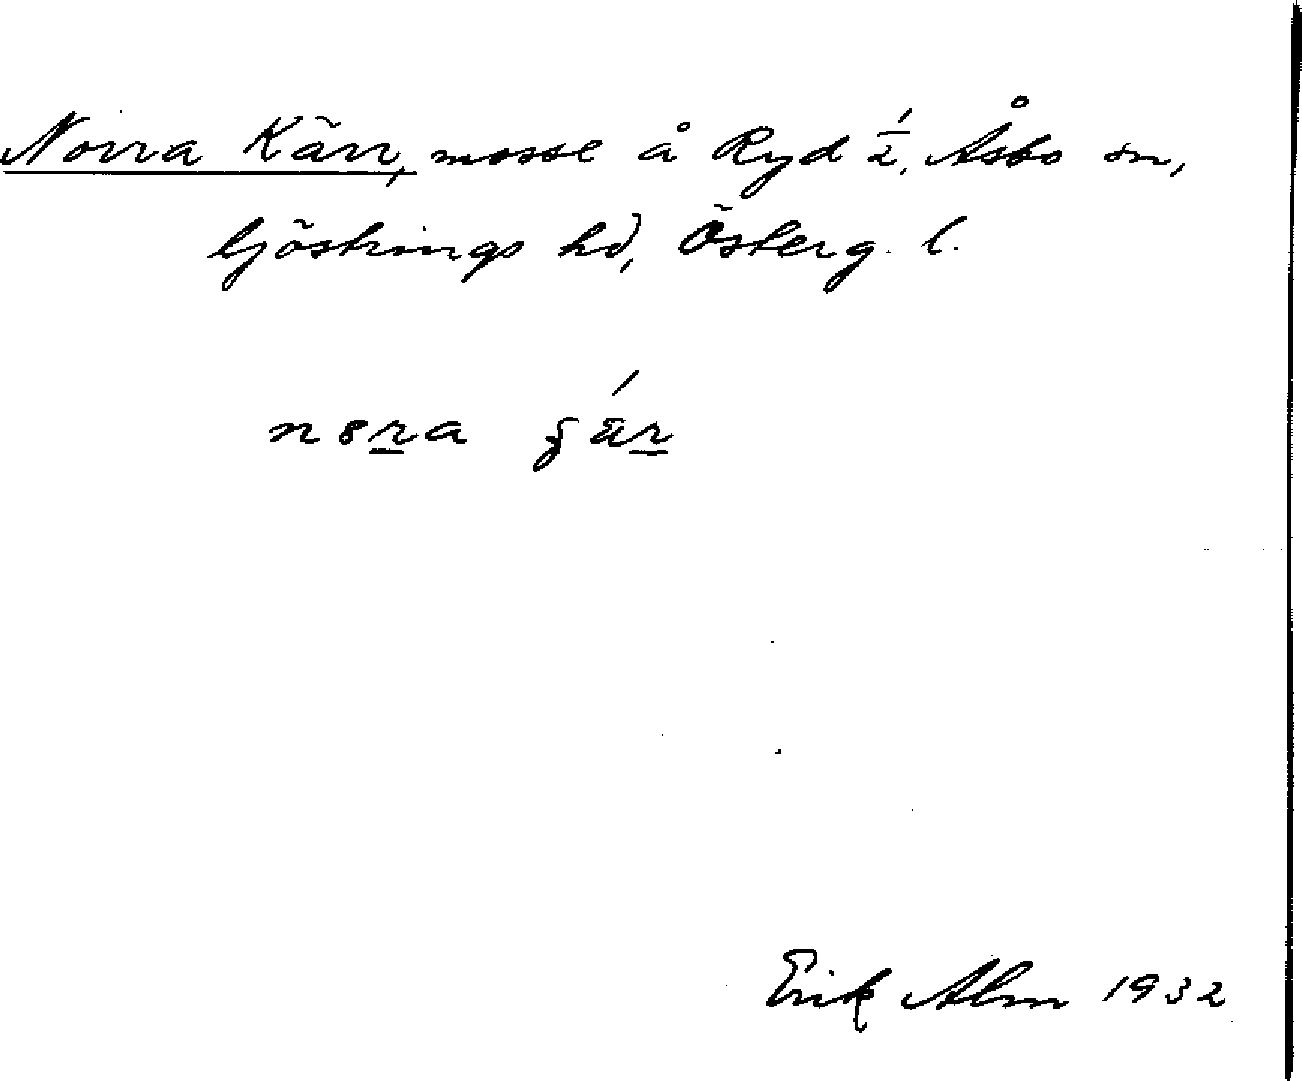 Norra Kärr, mosse å Ryd 1/2, Åsbo sn,
Göstrings hd, Österg. l.
Erik Alm 1932